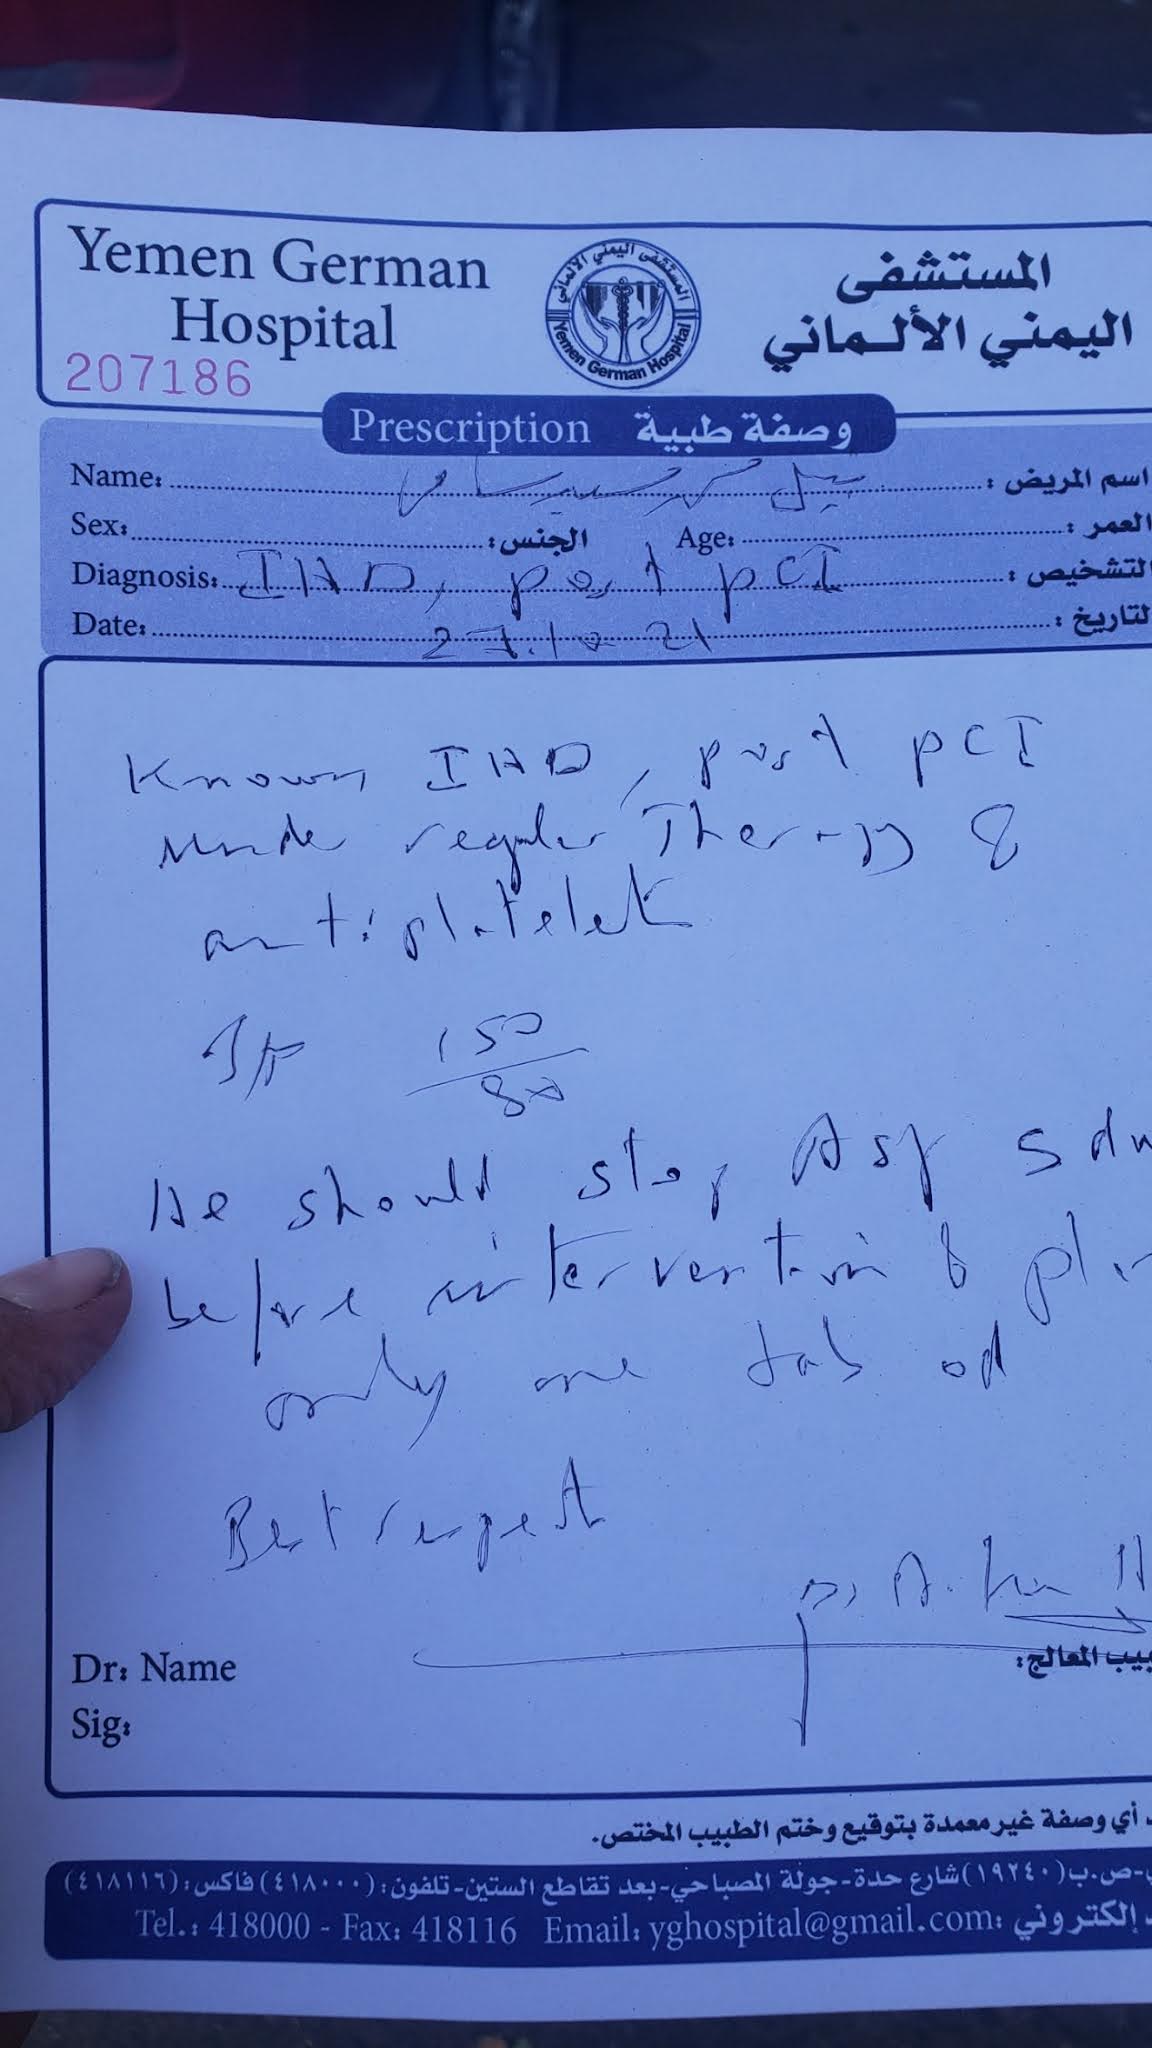 Yemen German
Hospital
207186
المستشفى
اليمني الألماني
المستشفى اليمني الألماني
Yemen German Hospital
Prescription وصفة طبية
Name: اسم المريض :
Sex: الجنس : Age: العمر :
Diagnosis: IHD, post PCI التشخيص :
Date: 27.10 21 لتاريخ :
Known IHD, post PCI
under regular Therapy &
antiplatelet
150
80
He should stop 5
before intervention &
only one tab od
Best
Dr A.
Dr: Name بيب المعالج:
Sig:
أي وصفة غير معمدة بتوقيع وختم الطبيب المختص.
-ص.ب (١٩٢٤٠) شارع حدة-جولة المصباحي-بعد تقاطع الستين-تلفون: (٤١٨٠٠٠) فاكس: (٤١٨١١٦)
Tel.: 418000 - Fax: 418116 Email: yghospital@gmail.com: إلكتروني